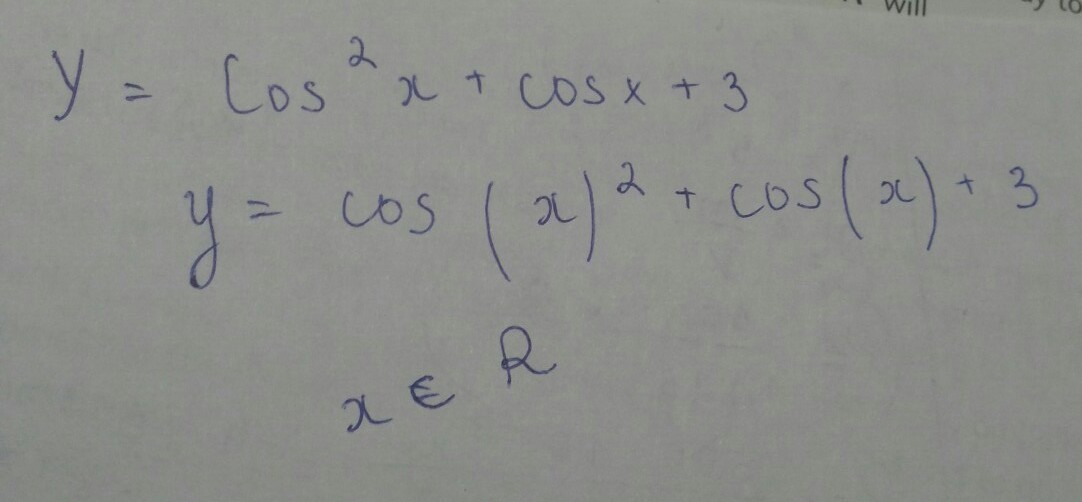 will
y = cos² x + cos x + 3
y = cos (x)² + cos(x) + 3
x ∈ R